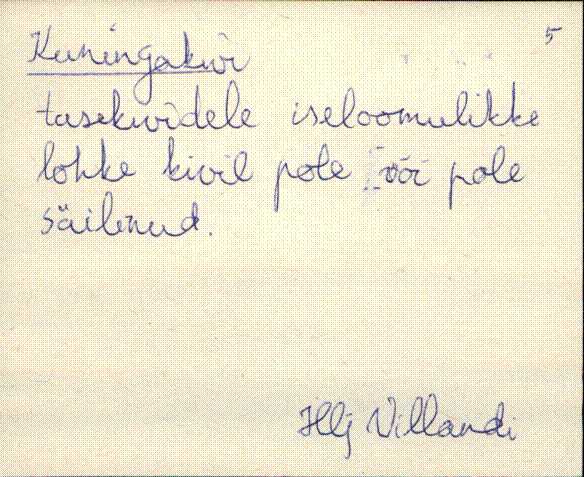 5
Kuningakivi
tasekividele iseloomulikke
lohke kivil pole või pole
säilinud.
Villandi